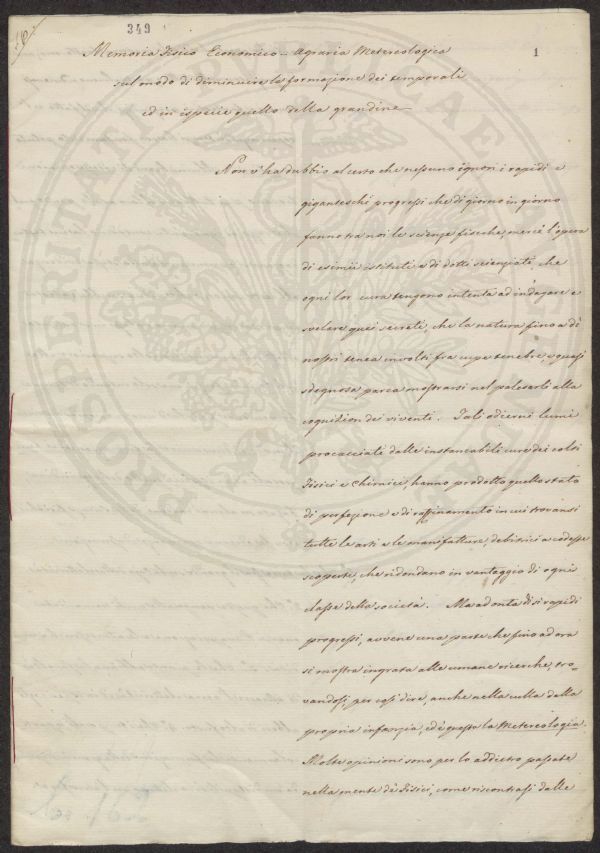 349
1
Memoria Fisico Economico-Agraria Metereologica
sul modo di diminuire la formazione dei temporali
ed in ispecie quello della grandine
Non v'ha dubbio al certo che nessuno ignori i rapidi e
giganteschi progressi che di giorno in giorno
fanno tra noi le scienze fisiche, mercè l'opera
di esimii istituti e di dotti scienziati, che
ogni lor cura tengono intenta ad indagare e
svelare quei secreti, che la natura fino a dì
nostri tenea involti fra cupe tenebre, e quasi
sdegnosa parea mostrarsi nel palesarli alla
cognizion dei viventi. Tali odierni lumi
procacciati dalle instancabili cure dei colti
Fisici e Chimici, hanno prodotto quello stato
di perfezione e di raffinamento in cui trovansi
tutte le arti e le manifatture, debitrici a codeste
scoperte, che ridondano in vantaggio di ogni
classe della società. Ma ad onta di sì rapidi
progressi, avvene una parte che fino ad ora
si mostra ingrata alle umane ricerche, tro=
vandosi, per così dire, anche nella culla della
propria infanzia, ed è questa la Metereologia.
Molte opinioni sono per lo addietro passate
nella mente de' Fisici, come riscontrasi dalle
PROSPERITATI PUBLICAE